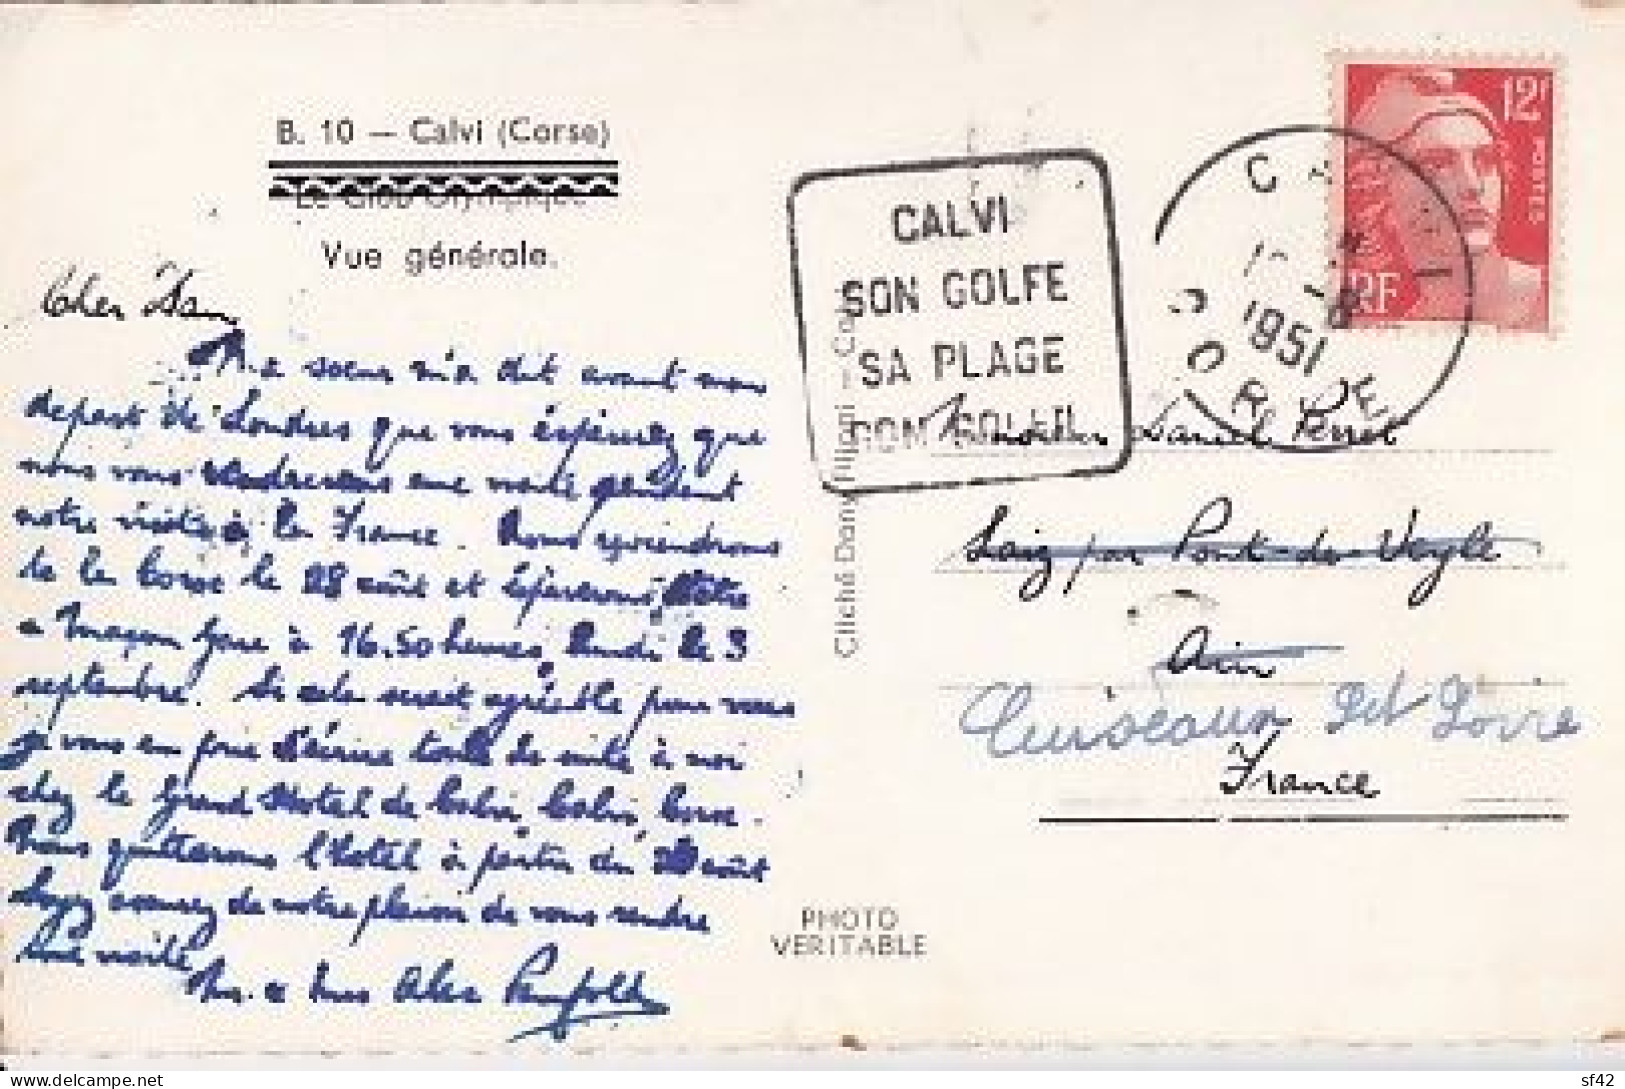 B. 10 — Calvi (Corse)
Le Club Olympique
Vue générale.
Cher Dan,
Ma soeur m'a dit avant mon
depart de Londres que vous éspérrez que
nous vous rendrerons une visite pendant
notre visite à la France. Nous rejoindrons
de la Corse le 28 août et
à Maçon Gare à 16.50 heures, lundi le 3
septembre. Si cela serait agréable pour vous
je vous en prie d'écrire toute de suite à moi
chez le Grand Hotel de Calvi, Calvi, Corse.
Nous quitterons l'Hotel à partir du août
Soyez assurez de notre plaisir de vous rendre
une visite
Mr. & Mrs Alec
CALVI
SON GOLFE
SA PLAGE
SON SOLEIL
CALVI
1951
CORSE
12F
POSTES
RF
Monsieur Daniel Perret
Laiz par Pont-de-Veyle
Ain
Cuiseaux Set Loire
France
Cliché Dany Filippi - Calvi
PHOTO
VERITABLE
delcampe.net
sf42